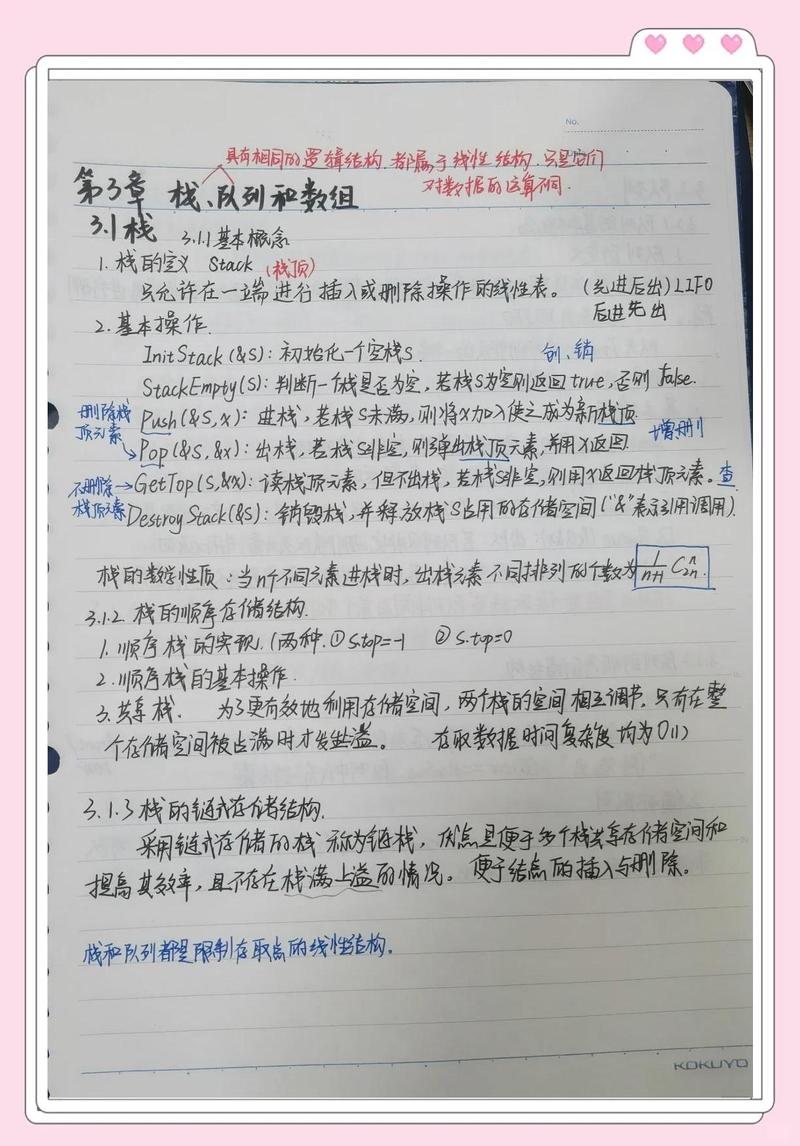 No.
具有相同的逻辑结构.都属于线性结构.只是它们
对数据的运算不同.
第3章 栈、队列和数组
3.1 栈 3.1.1 基本概念
1. 栈的定义 Stack (栈顶)
只允许在一端进行插入或删除操作的线性表。 (先进后出) LIFO
后进先出
2. 基本操作.
InitStack(&S): 初始化一个空栈S. 创、销
StackEmpty(S): 判断一个栈是否为空, 若栈S为空则返回true, 否则 false.
删除栈顶元素
Push(&S,x): 进栈, 若栈S未满, 则将x加入使之成为新栈顶.
Pop(&S,&x): 出栈, 若栈S非空, 则弹出栈顶元素, 并用x返回. 增删
不删除栈顶元素
GetTop(S,&x): 读栈顶元素, 但不出栈, 若栈S非空, 则用x返回栈顶元素。 查
DestroyStack(&S): 销毁栈, 并释放栈S占用的存储空间 ("&"表示引用调用).
栈的数学性质: 当n个不同元素进栈时, 出栈元素不同排列的个数为 1/(n+1) C_{2n}^{n}
3.1.2 栈的顺序存储结构.
1. 顺序栈的实现. (两种. ① S.top=-1 ② S.top=0
2. 顺序栈的基本操作.
3. 共享栈. 为了更有效地利用存储空间, 两个栈的空间相互调节, 只有在整
个存储空间被占满时才发生溢。 存取数据时间复杂度均为O(1)
3.1.3 栈的链式存储结构.
采用链式存储的栈称为链栈, 优点是便于多个栈共享存储空间和
提高其效率, 且不存在栈满上溢的情况。 便于结点的插入与删除。
栈和队列都是限制存取点的线性结构.
KOKUYO